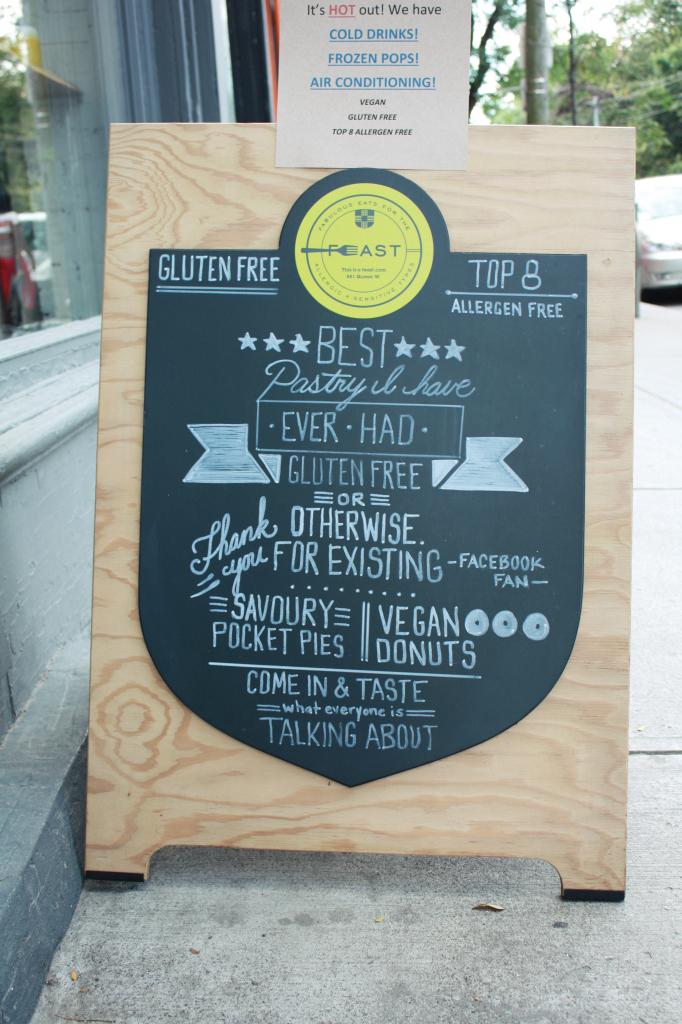 It's HOT out! We have
COLD DRINKS!
FROZEN POPS!
AIR CONDITIONING!
VEGAN
GLUTEN FREE
TOP 8 ALLERGEN FREE
FABULOUS EATS FOR THE
FEAST
This is a feast.com
651 Queen W
ALLERGIC + SENSITIVE TYPES
GLUTEN FREE
TOP 8
ALLERGEN FREE
BEST
Pastry I have
EVER · HAD ·
GLUTEN FREE
OR
OTHERWISE.
Thank you FOR EXISTING
-FACEBOOK
FAN-
SAVOURY
POCKET PIES
VEGAN
DONUTS
COME IN & TASTE
what everyone is
TALKING ABOUT